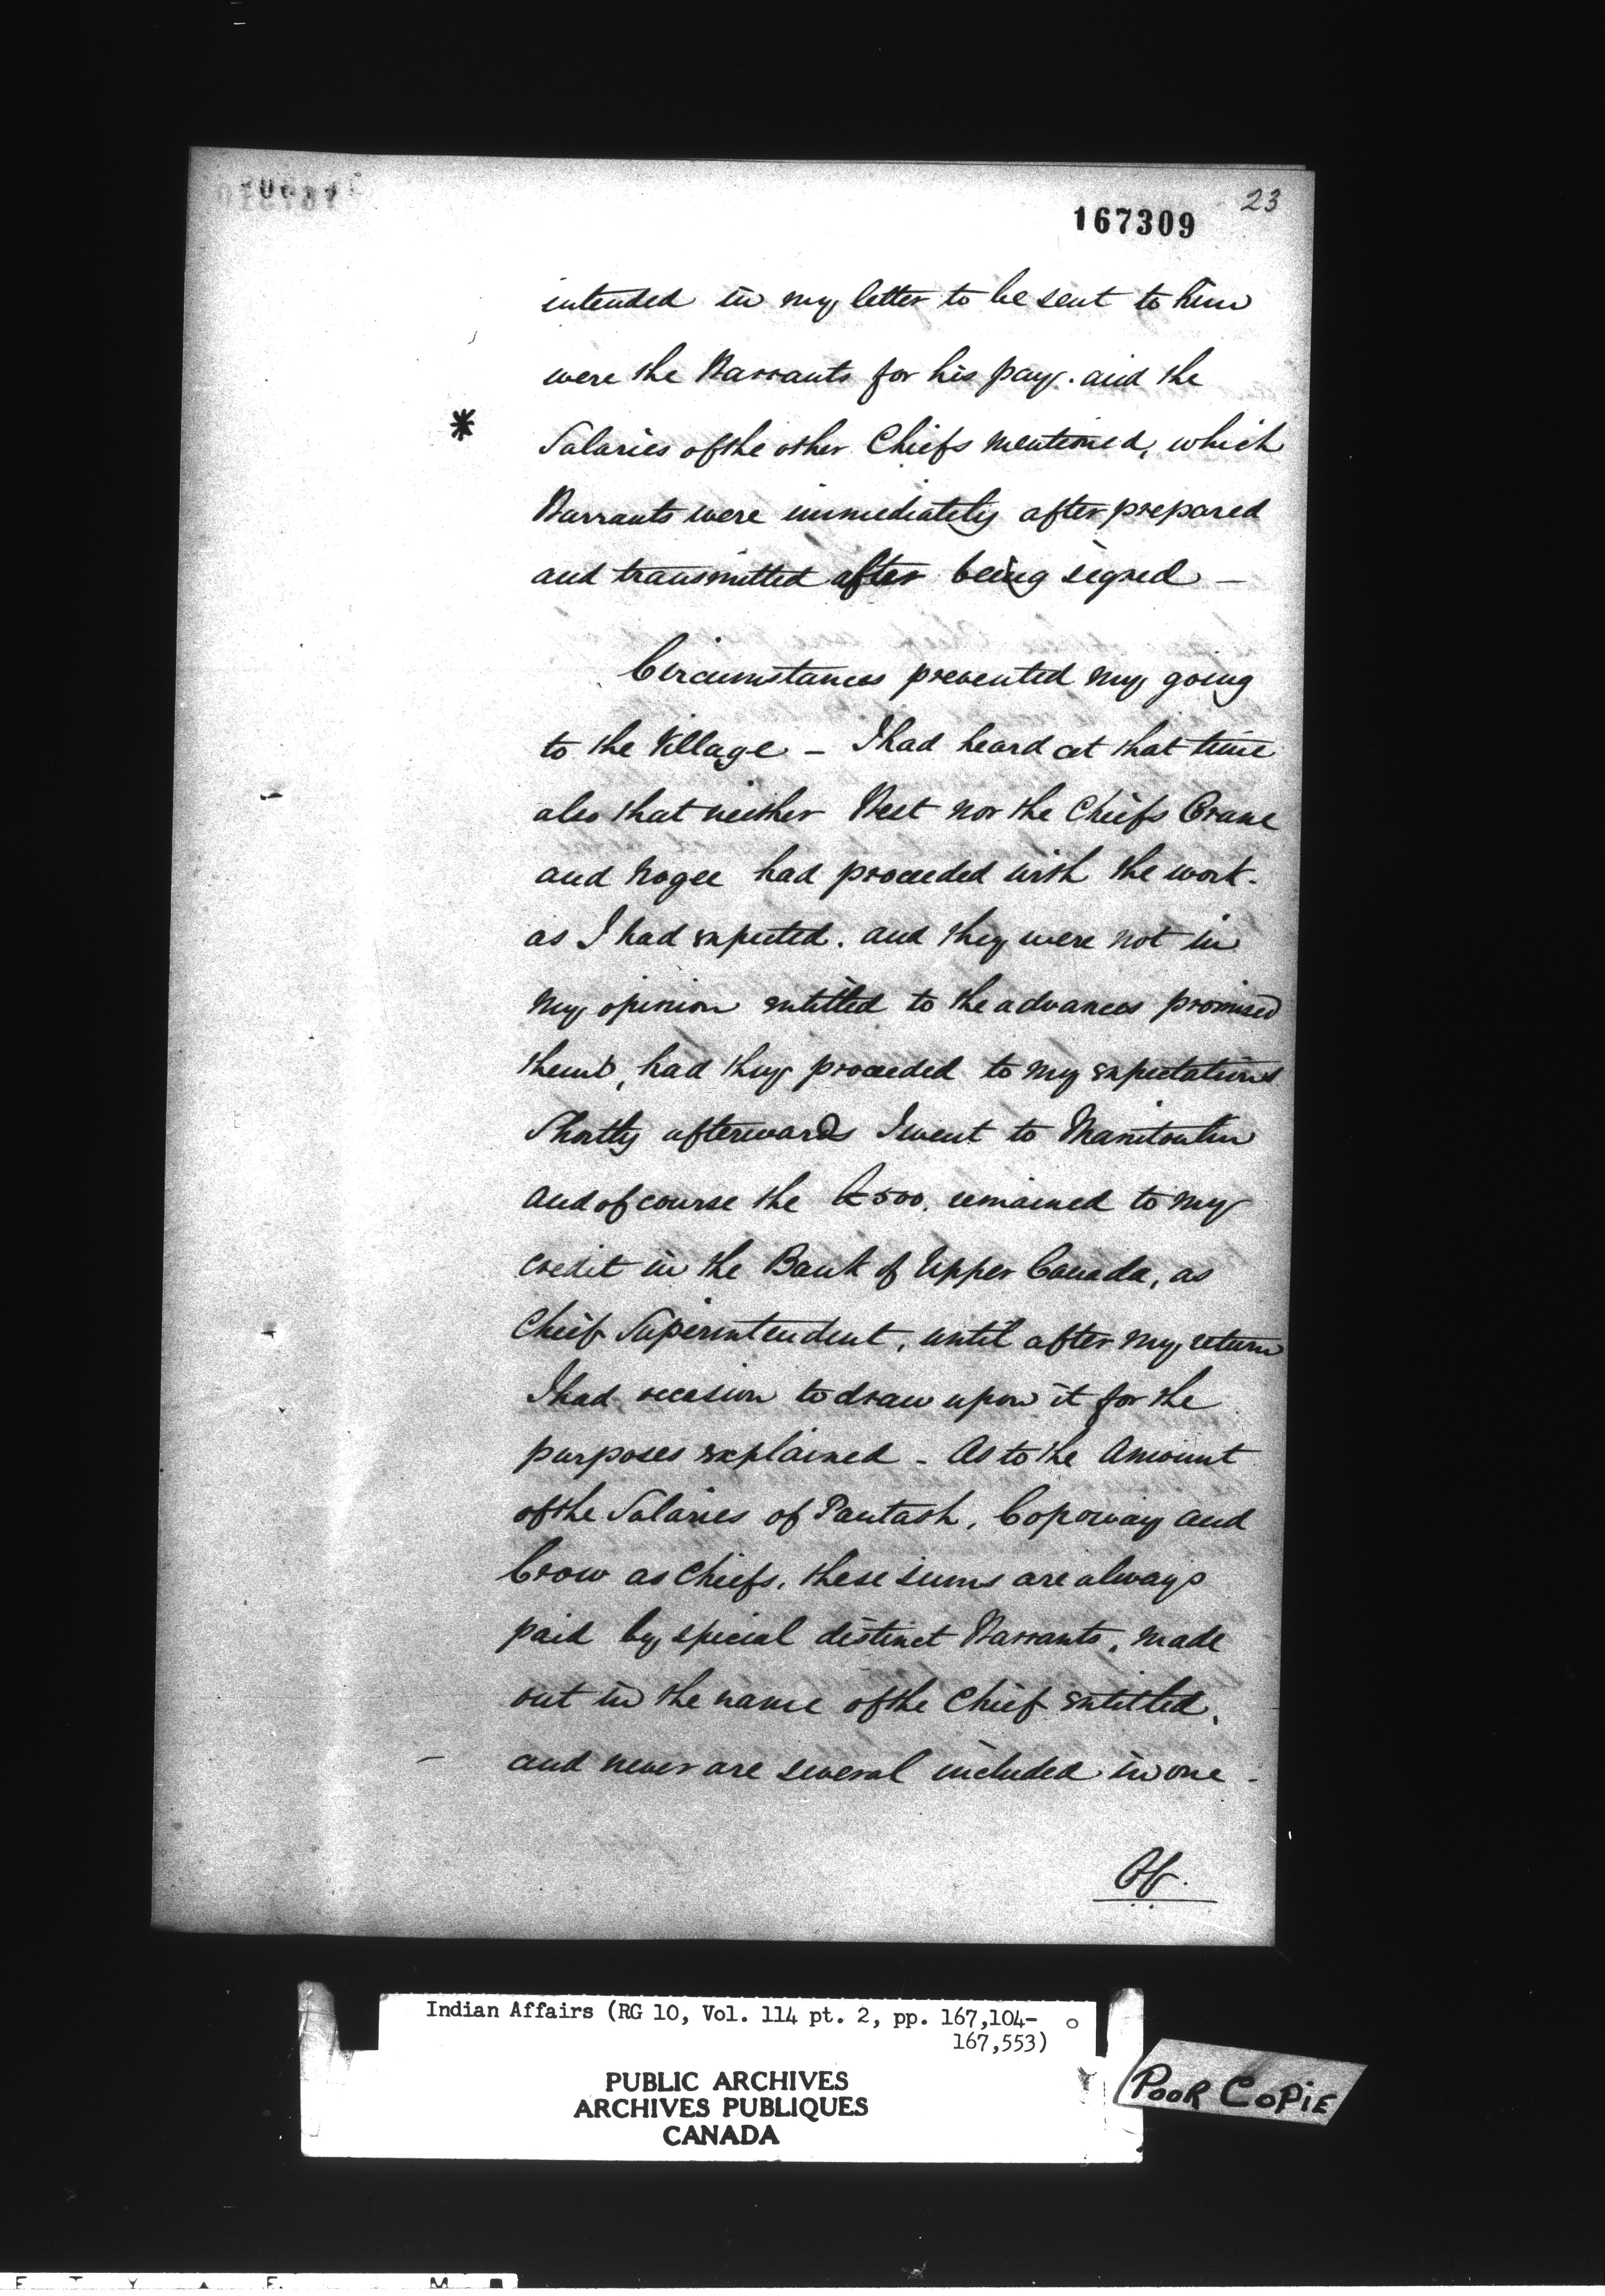 23
167309
intended in my letter to be sent to him
were the Warrants for his pay. and the
* Salaries of the other Chiefs mentioned, which
Warrants were immediately after prepared
and transmitted after being signed –
Circumstances prevented my going
to the Village – I had heard at that time
also that neither West nor the Chiefs Crane
and Nogee had proceeded with the work.
as I had expected. and they were not in
my opinion entitled to the advances promised
them, had they proceeded to my expectations
Shortly afterwards I went to Manitoulin
and of course the £500. remained to my
credit in the Bank of Upper Canada, as
Chief Superintendent, until after my return
I had occasion to draw upon it for the
purposes explained – As to the Amount
of the Salaries of Pautash, Copoway and
Crow as Chiefs. these sums are always
paid by special distinct Warrants, made
out in the name of the Chief entitled,
and never are several included in one –
Of.
Indian Affairs (RG 10, Vol. 114 pt. 2, pp. 167,104-
167,553)
PUBLIC ARCHIVES
ARCHIVES PUBLIQUES
CANADA
POOR COPIE